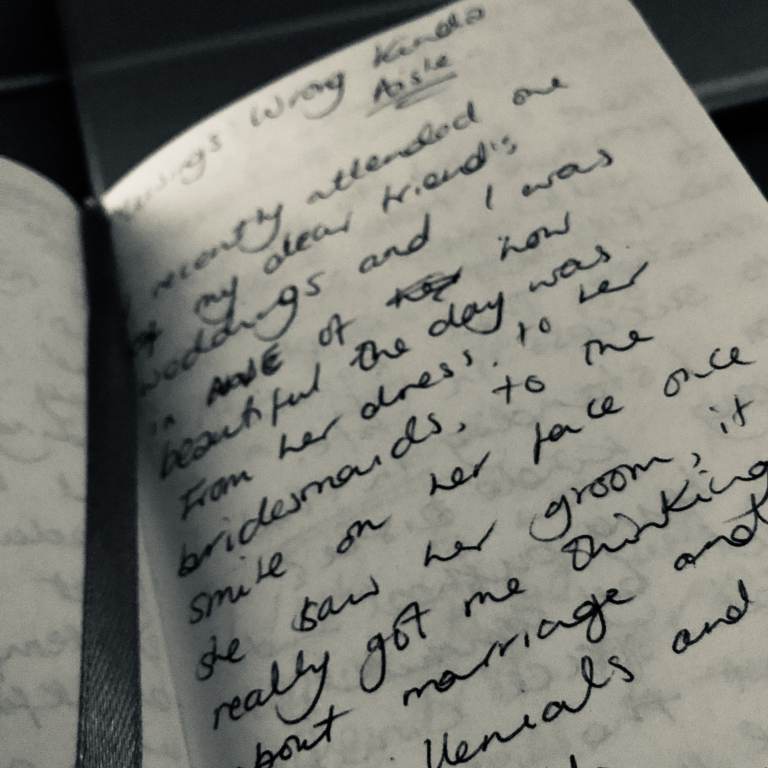 Wrong Kinda
Aisle
recently attended one
of my dear friend's
weddings and I was
in AWE of how
beautiful the day was.
From her dress, to her
bridesmaids, to the
smile on her face once
she saw her groom, it
really got me thinking
about marriage and
and